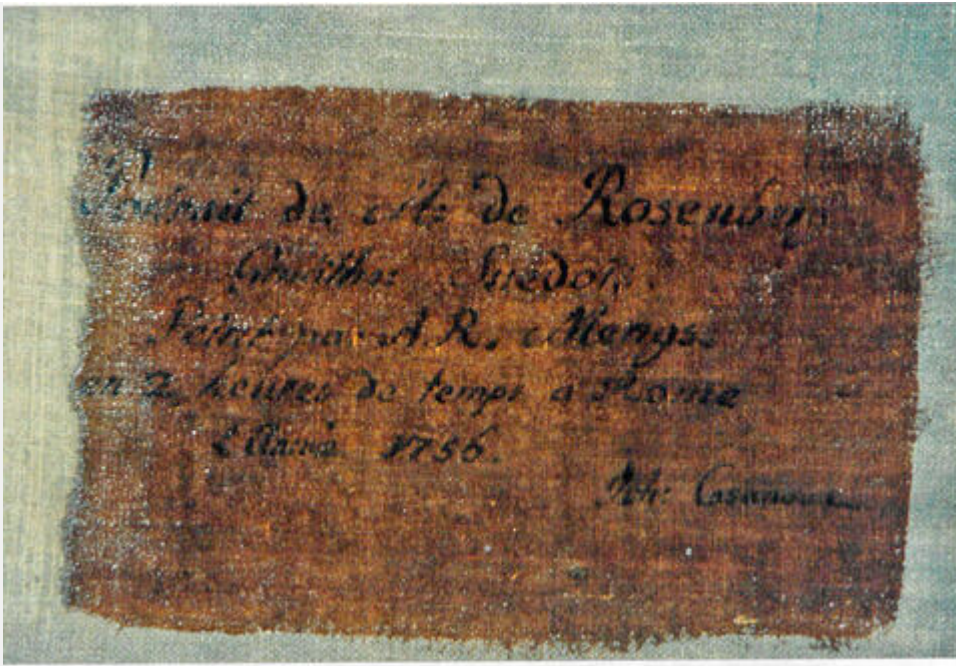 Portrait du Mr de Rosenberg
Suedois.
Peint par A. R. Mengs.
en 2 heures de temps a Rome
L'Année 1756.
Joh: Casanova